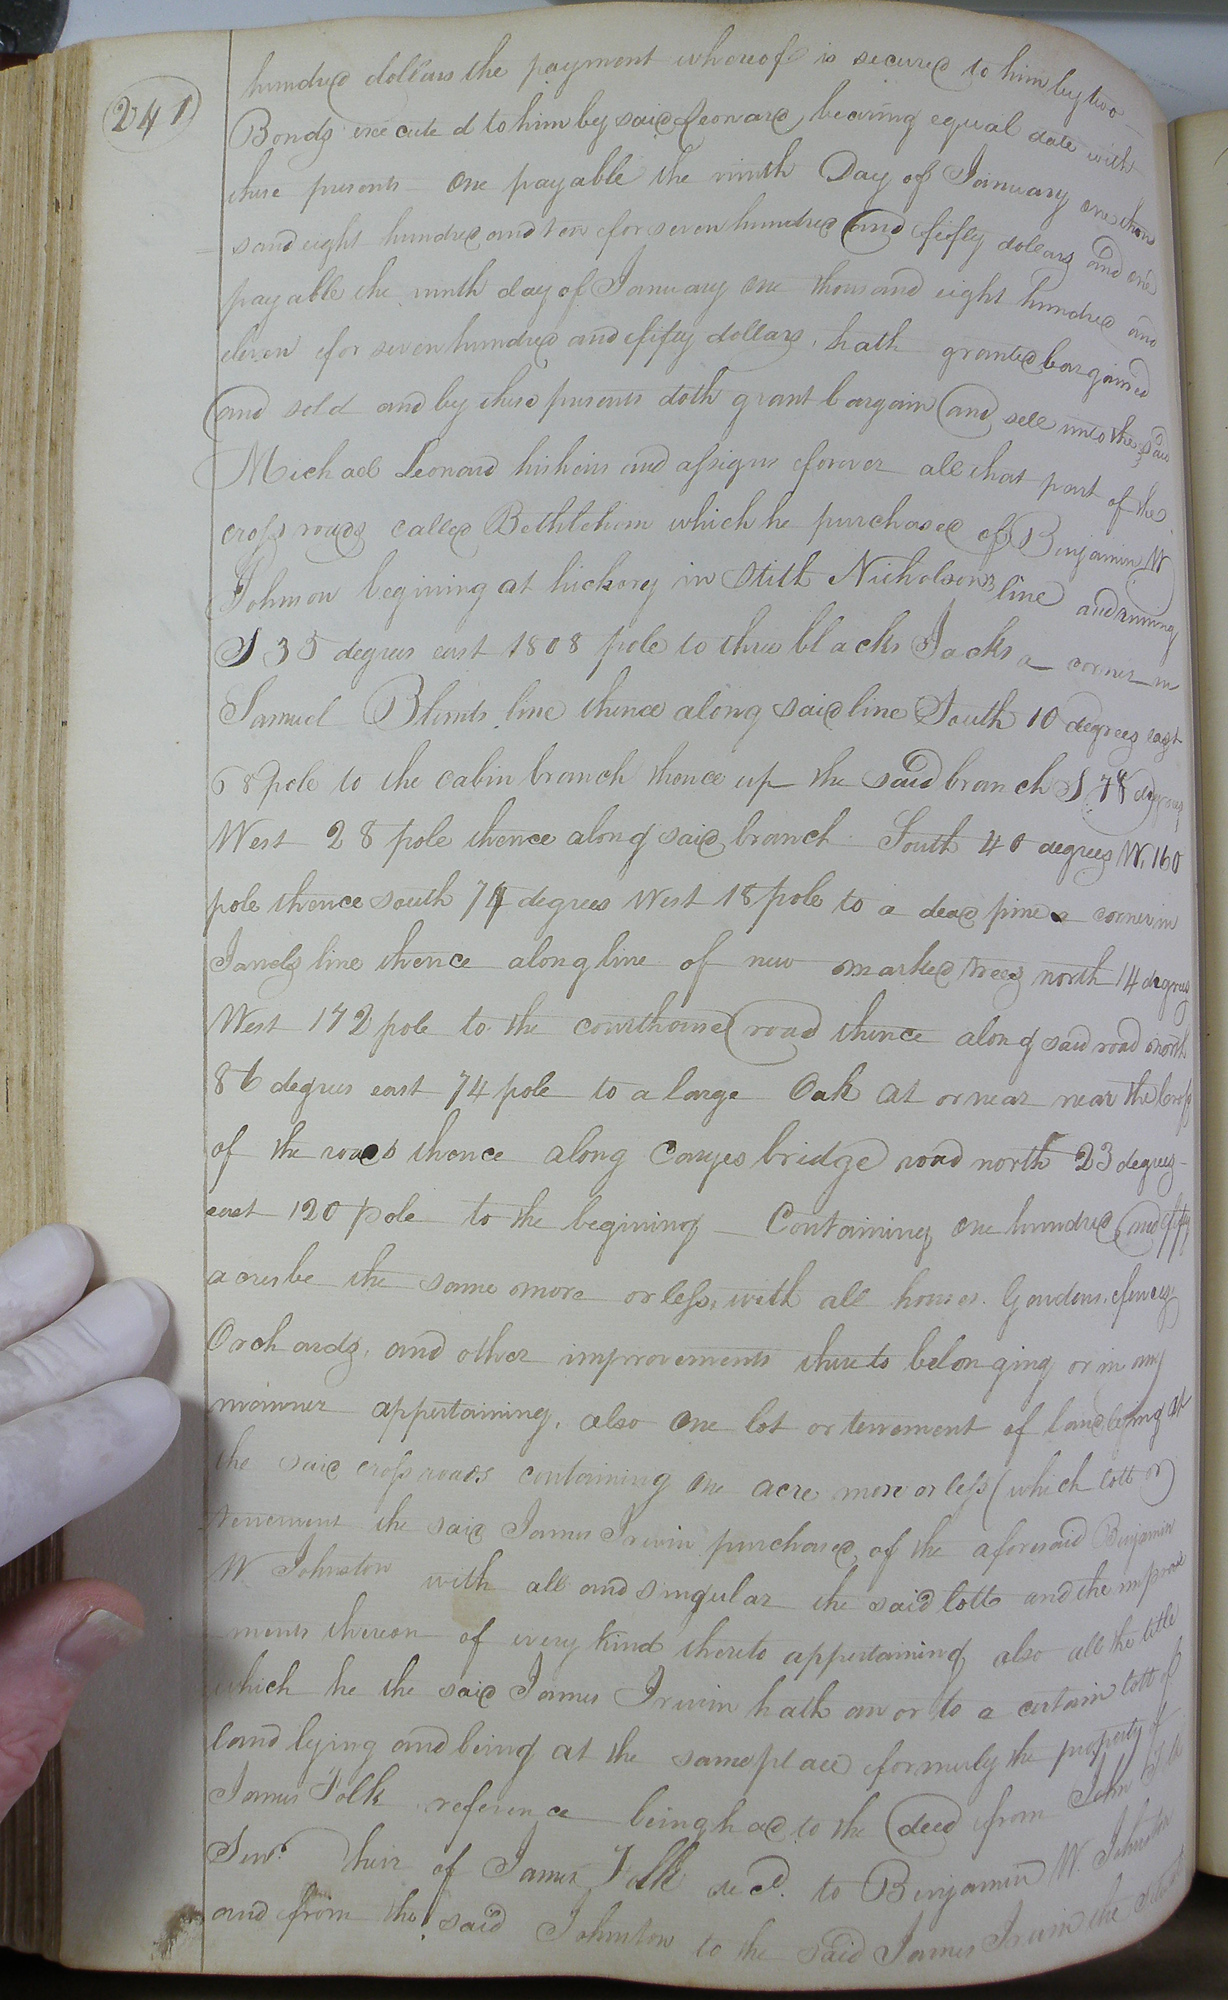 241
hundred dollars the payment whereof is secured to him by two
Bonds executed to him by said Leonard, bearing equal date with
these presents one payable the ninth Day of January one thou
sand eight hundred and ten for seven hundred and fifty dollars and one
payable the ninth day of January one thousand eight hundred and
eleven for seven hundred and fifty dollars, hath granted bargained
and sold and by these presents doth grant bargain and sell unto the said
Michael Leonard his heirs and assigns forever all that part of the
cross roads called Bethlehem which he purchased of Benjamin W
Johnson begining at hickory in Stith Nicholsons line and running
S 35 degrees east 1808 pole to three blacks Jacks a corner in
Samuel Blunts line thence along said line South 10 degrees east
68 pole to the cabin branch thence up the said branch S 78 degrees
West 28 pole thence along said branch South 40 degrees W. 160
pole thence south 74 degrees West 18 pole to a dead pine a corner in
Jands line thence along line of new marked trees north 14 degrees
West 172 pole to the courthouse road thence along said road north
86 degrees east 74 pole to a large Oak at or near near the Cross
of the roads thence along Canyes bridge road north 23 degrees
east 120 pole to the begining Containing one hundred and fifty
acres be the same more or less, with all houses. Gardens, fences
Orchards, and other improvements thereto belonging or in any
manner appertaining, also one lot or tenement of land lying at
the said cross roads containing one acre more or less (which lott or
tenement the said James Irwin purchased, of the aforesaid Benjamin
W Johnston with all and singular the said lott and the improve
ments thereon of every kind thereto appertaining also all the title
which he the said James Irwin hath an or to a certain lott of
land lying and being at the same place formerly the property of
James Folk reference being had to the deed from John Folk
Senr. heir of James Folk decd. to Benjamin W. Johnston
and from the said Johnston to the said James Irwin the